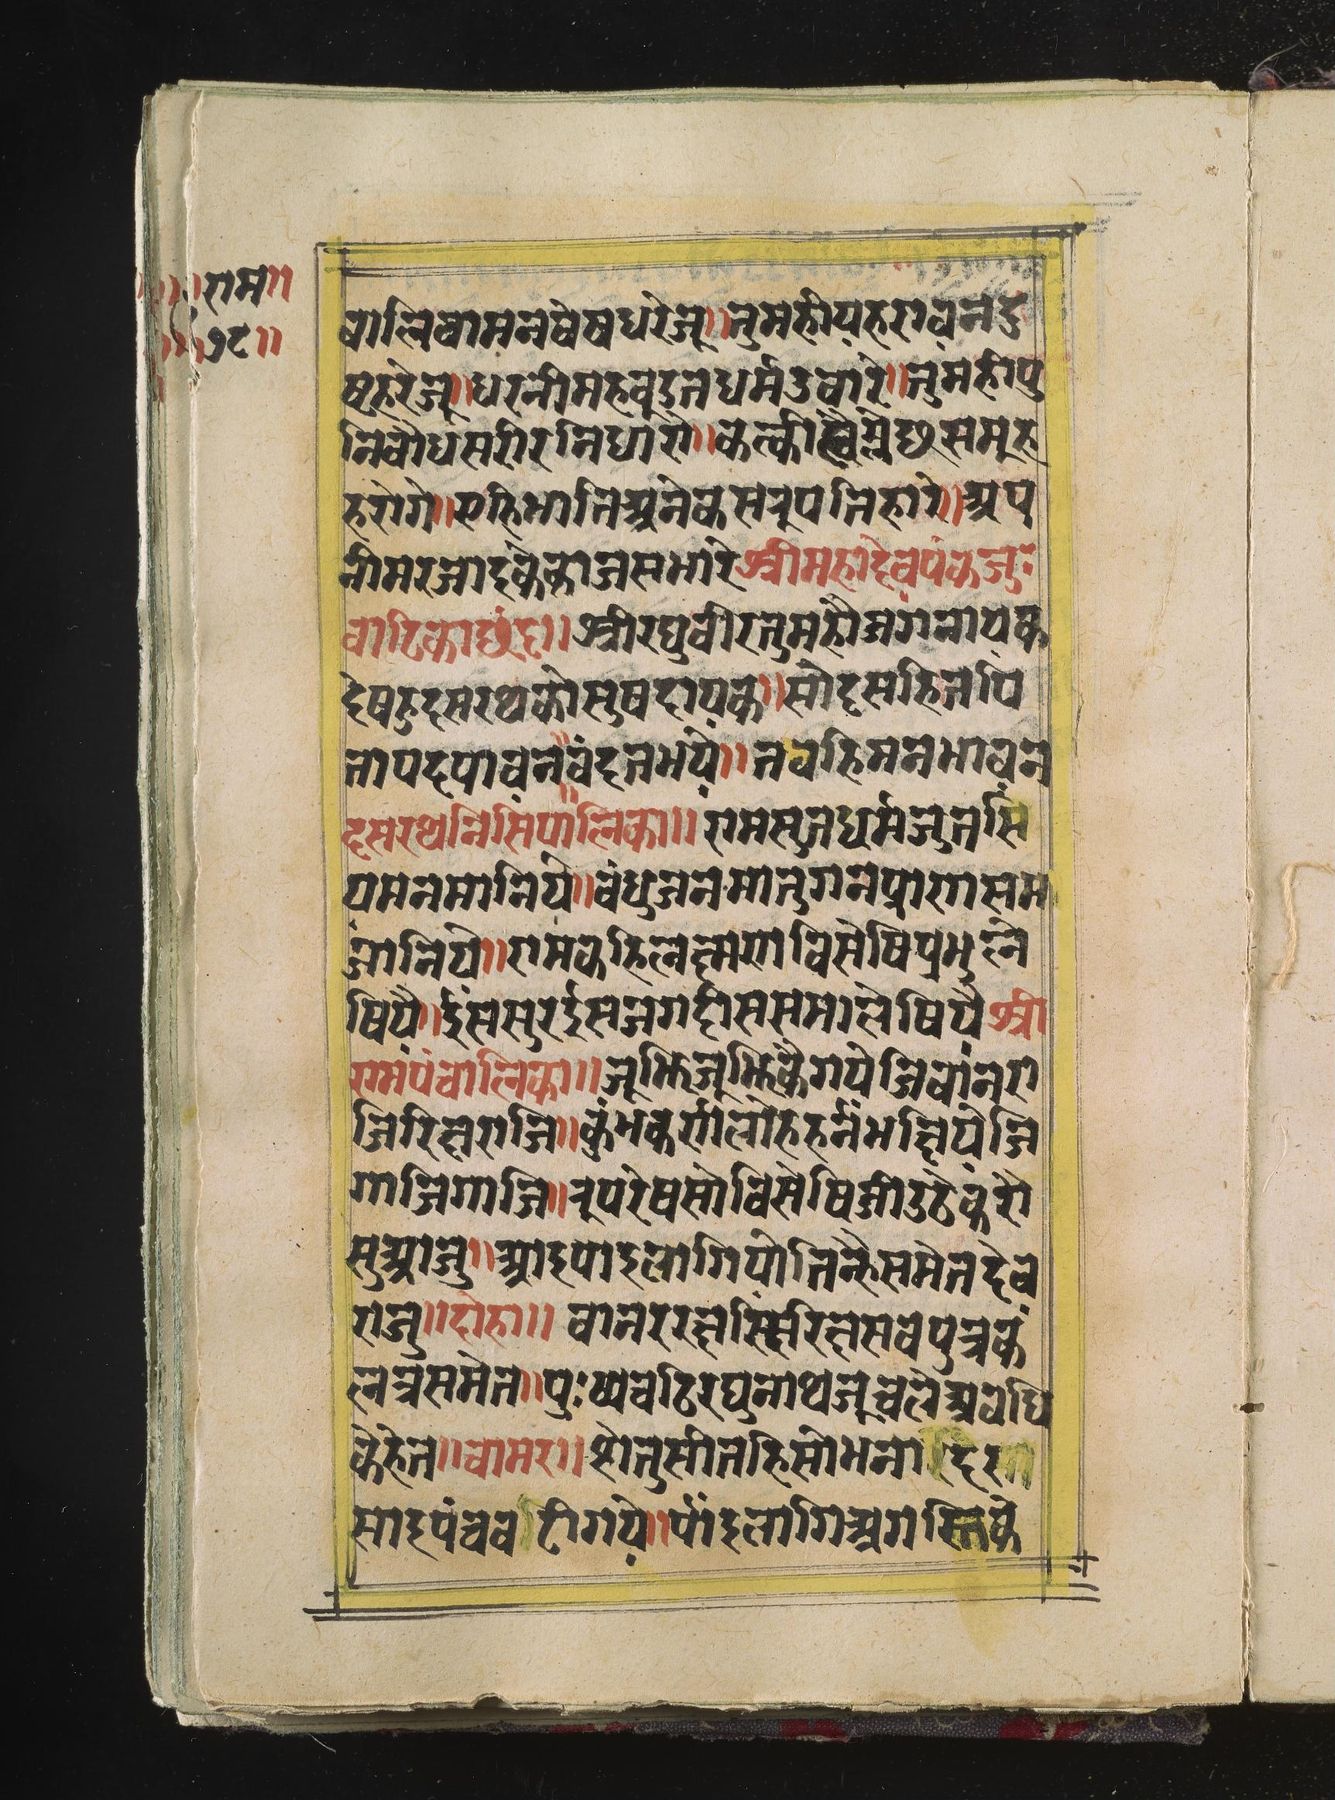 ॥राम॥
॥७८॥
वालिवामनवेषधरेजू॥तुमहीपहरावनदु
षहरेजू॥धरनीमहवूडतधर्मउवारे॥तुमहीपु
निवौधसरीरनिधारो॥कल्कीह्वैम्लेछसमूह
हरोगे॥एहिभातिअनेकसरूपनिहारे॥अप
नीमरजादकैकाजसभारेश्रीमहादेवपंकजु
वाटिकाछंद॥श्रीरघुवीरतुमहौजगनायक
देषहुदसरथकोसुषदायक॥सोदसहितपि
तापदपावनवंदनभये॥तवहिमनभावन
दसरथनिसिंपालिका॥रामसुतधर्मजुतसि
यमनमानिये॥वंधुजनमातुगनप्राणसम
जानिये॥रामकहिलछमणविसेषिप्रभुले
षियै॥ईससुरईसजगदीससमालेषियैश्री
रामंपंचालिका॥जूझिजूझिकैगयेजिवांनरा
जिरिछराजि॥कुंभकर्णलोहहर्नभछियेजि
गाजिगाजि॥रूपरेषसोविसेषिजीउठेकरौ
सुआजु॥आइपाइलागियोतिन्हैसमेतदेव
राजु॥दोहा॥ वानररछसिंरिछसवपुत्रकं
लत्रसमेत॥पुःष्पचढिरघुनाथजूचलेअवधि
केहेत॥चामर॥ सेतुसीतहिसोभना
सादपंचवटीगये॥पांइलागिअगस्तिके